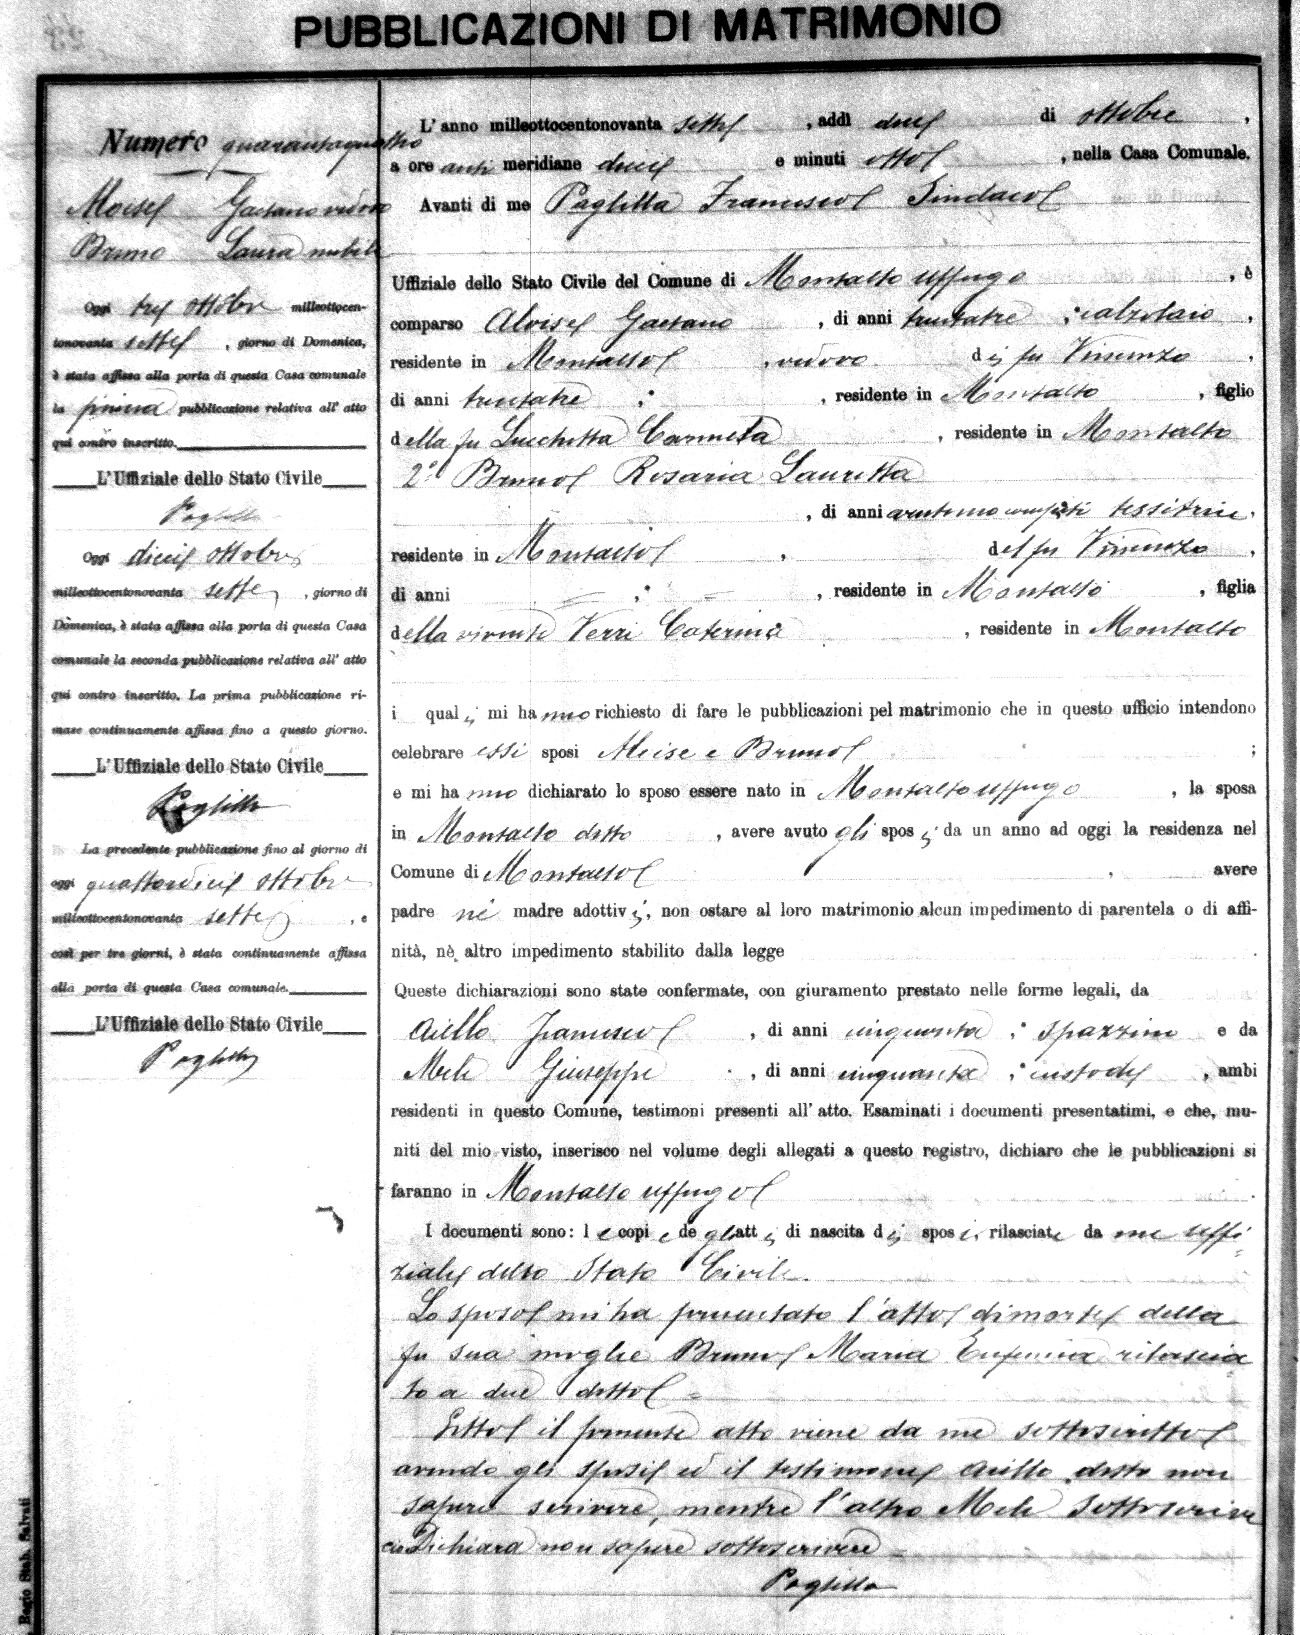 PUBBLICAZIONI DI MATRIMONIO
Numero quarantaquattro
Gaetano vedovo
Bruno Laura nubile
Oggi tre ottobre milleottocen-
tonovanta sette, giorno di Domenica,
è stata affissa alla porta di questa Casa comunale
la prima pubblicazione relativa all' atto
qui contro inscritto.
L'Uffiziale dello Stato Civile
Paglilla
Oggi dieci ottobre
milleottocentonovanta sette, giorno di
Domenica, è stata affissa alla porta di questa Casa
comunale la seconda pubblicazione relativa all' atto
qui contro inscritto. La prima pubblicazione ri-
mase continuamente affissa fino a questo giorno.
L'Uffiziale dello Stato Civile
Paglilla
La precedente pubblicazione fino al giorno di
oggi quattordici ottobre
milleottocentonovanta sette, e
così per tre giorni, è stata continuamente affissa
alla porta di questa Casa comunale.
L'Uffiziale dello Stato Civile
Paglilla
L' anno milleottocentonovanta sette, addì due di ottobre,
a ore anti meridiane dieci e minuti otto, nella Casa Comunale.
Avanti di me Paglilla Francesco Sindaco
Uffiziale dello Stato Civile del Comune di Montalto Uffugo, è
comparso Aloise Gaetano, di anni trentatre; calzolaio,
residente in Montalto, vedovo di fu Vincenzo,
di anni trentatre;, residente in Montalto, figlio
della fu Lucchetta Carmela, residente in Montalto
2° Bruno Rosaria Lauretta
, di anni ventuno compiti tessitrice.
residente in Montalto, del fu Vincenzo,
di anni = ; =, residente in Montalto, figlia
della vivente Verri Caterina, residente in Montalto
i quali mi hanno richiesto di fare le pubblicazioni pel matrimonio che in questo ufficio intendono
celebrare essi sposi Aloise e Bruno;
e mi hanno dichiarato lo sposo essere nato in Montalto Uffugo, la sposa
in Montalto detto, avere avuto gli sposi da un anno ad oggi la residenza nel
Comune di Montalto, avere
padre nè madre adottivi, non ostare al loro matrimonio alcun impedimento di parentela o di affi-
nità, nè altro impedimento stabilito dalla legge
Queste dichiarazioni sono state confermate, con giuramento prestato nelle forme legali, da
Aiello Francesco, di anni cinquanta; spazzino e da
Mele Giuseppe, di anni cinquanta; custode, ambi
residenti in questo Comune, testimoni presenti all' atto. Esaminati i documenti presentatimi, e che, mu-
niti del mio visto, inserisco nel volume degli allegati a questo registro, dichiaro che le pubblicazioni si
faranno in Montalto Uffugo
I documenti sono: le copie degli atti di nascita di sposi rilasciate da me Uffi-
ziale dello Stato Civile.
Lo sposo mi ha presentato l'atto di morte della
fu sua moglie Bruno Maria Eufemia rilascia
to a due detto =
Letto il presente atto viene da me sottoscritto
avendo gli sposi ed il testimone Aiello detto non
sapere scrivere, mentre l'altro Mele
Dichiara non sapere sottoscrivere =
Paglilla
Regio Stab. Salvati